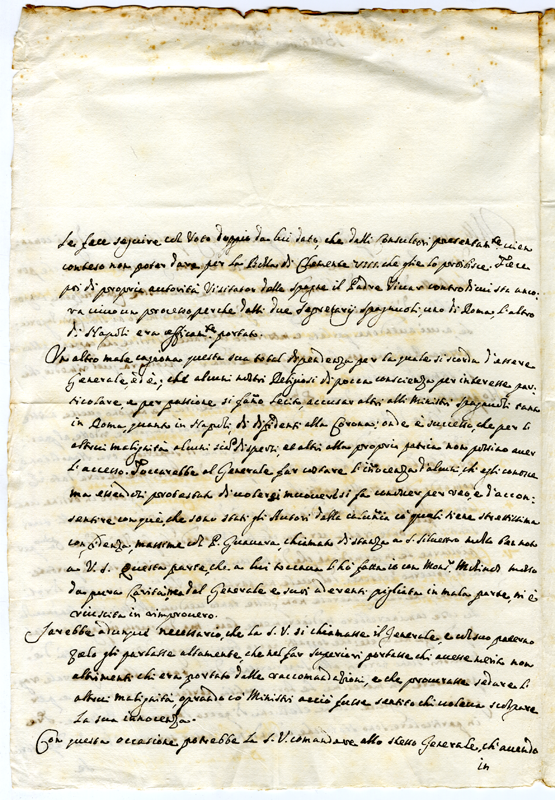 Le fece seguire col Voto doppio da lui dato, che dalli Consultori presentan.te vien
conteso non poter dare, per la Bolla di Clemente VIII. che glie lo proibisce. Fece
poi di propria autorità Visitator delle Spagne il Padre contro di cui sta anco-
ra vivo un processo, perche dalli due Segretarij Spagnuoli, uno di Roma, l'altro
di Napoli era portato.
Un altro male cagiona questa sua total dipendenza, per la quale si scorda d'essere
Generale, ed è, che alcuni nostri Religiosi di pocca conscienza per interesse par-
ticolare, e per passione si fanno lecito, accusar altri alli Ministri Spagnuoli tanto
in Roma, quanto in Napoli, di diffidenti alla Corona; onde è successo, che per l'
altrui malignità alcuni siano dispersi, et altri alla propria patria non possino aver
l'accesso. Toccarebbe al Generale far costare l'innocenza d'alcuni, ch'egli conosce
ma essendosi protestato di non volersi muovere, si fa conoscer per reo, e d'accon-
sentire con què, che sono stati gli Autori della calunnia cò quali tiene strettissima
confidenza, massime col P. Guevara, chiamato di stanza a S. Silvestro molto ben noto
a V. S. Questa parte, che a lui tocava l'hò fatta io con Mons.r Molines mosso
da pura Carità, ma dal Generale e suoi aderenti pigliata in mala parte, mi è
riuscita in rimprovero.
Sarebbe adunque necessario, che la S. V. si chiamasse il Generale, e col suo paterno
zelo gli parlasse altamente, che nel far Superiori portasse chi avesse merito non
altrimenti chi era portato dalle raccomandazioni, e che procurasse sedare l'
altrui malignità, operando cò Ministri acciò fusse sentito chi voleva scolpare
la sua innocenza.
Con questa occasione potrebbe la S. V. comandare allo stesso Generale, ch'avendo
in